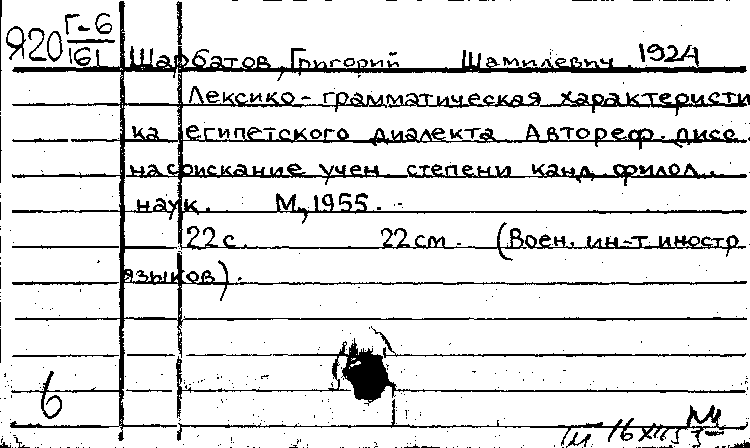 Я20 Г-6
161
Шарбатов, Григорий Шамилевич 1924
Лексико-грамматическая характеристи
ка египетского диалекта Автореф. дисс.
на соискание учен. степени канд. филол.
наук. М., 1955.
22 с. 22 см. (Воен. ин-т иностр
языков).
6